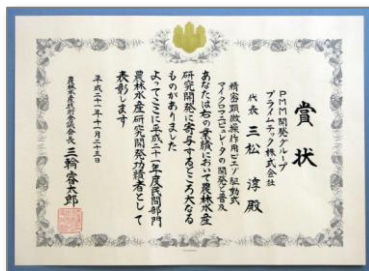 賞状
PMM開発グループ
プライムテック株式会社
代表 三松 淳 殿
精密顕微操作用ピエゾ駆動式
マイクロマニピュレータの開発と普及
あなたは右の業績において農林水産
研究開発に寄与するところ大なる
ものがありました
よってここに平成二十一年度民間部門
農林水産研究開発功績者として
表彰します
平成二十一年十一月二十五日
農林水産技術会議会長 三輪睿太郎